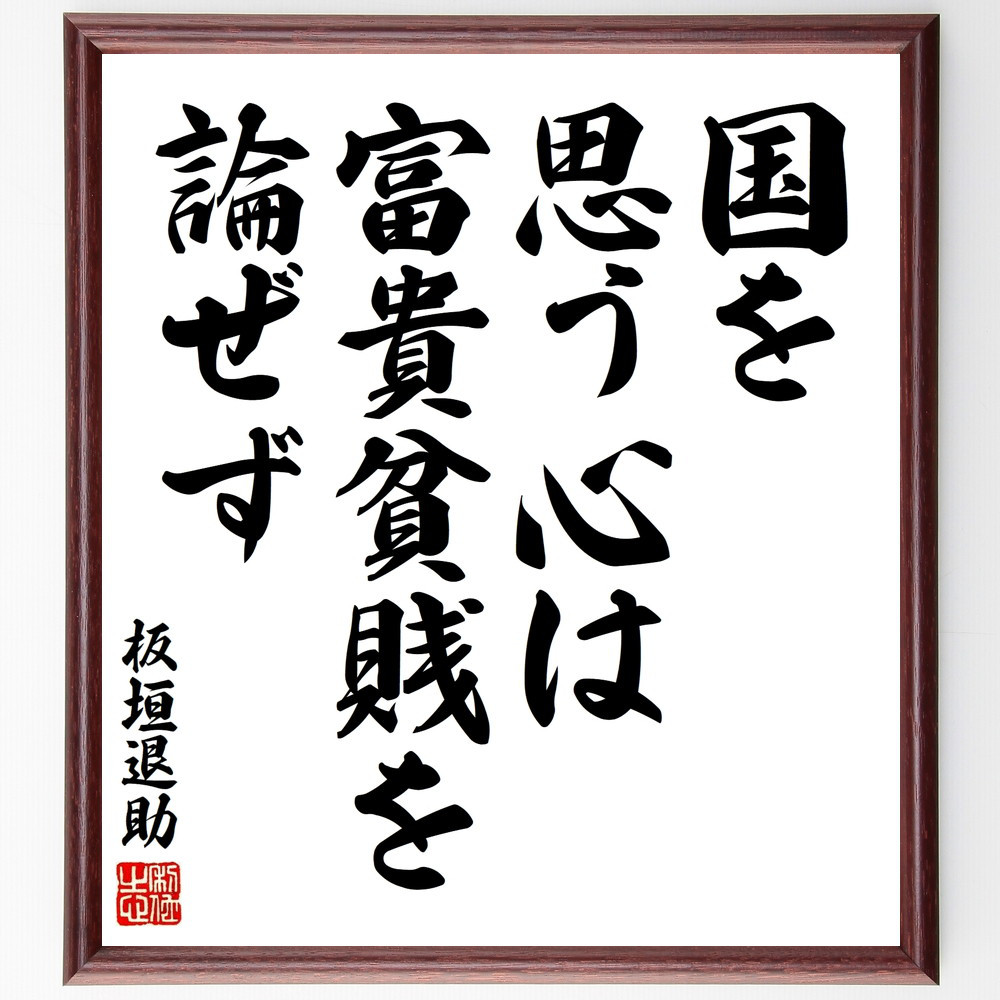 国を
思う心は
富貴貧賎を
論ぜず
板垣退助